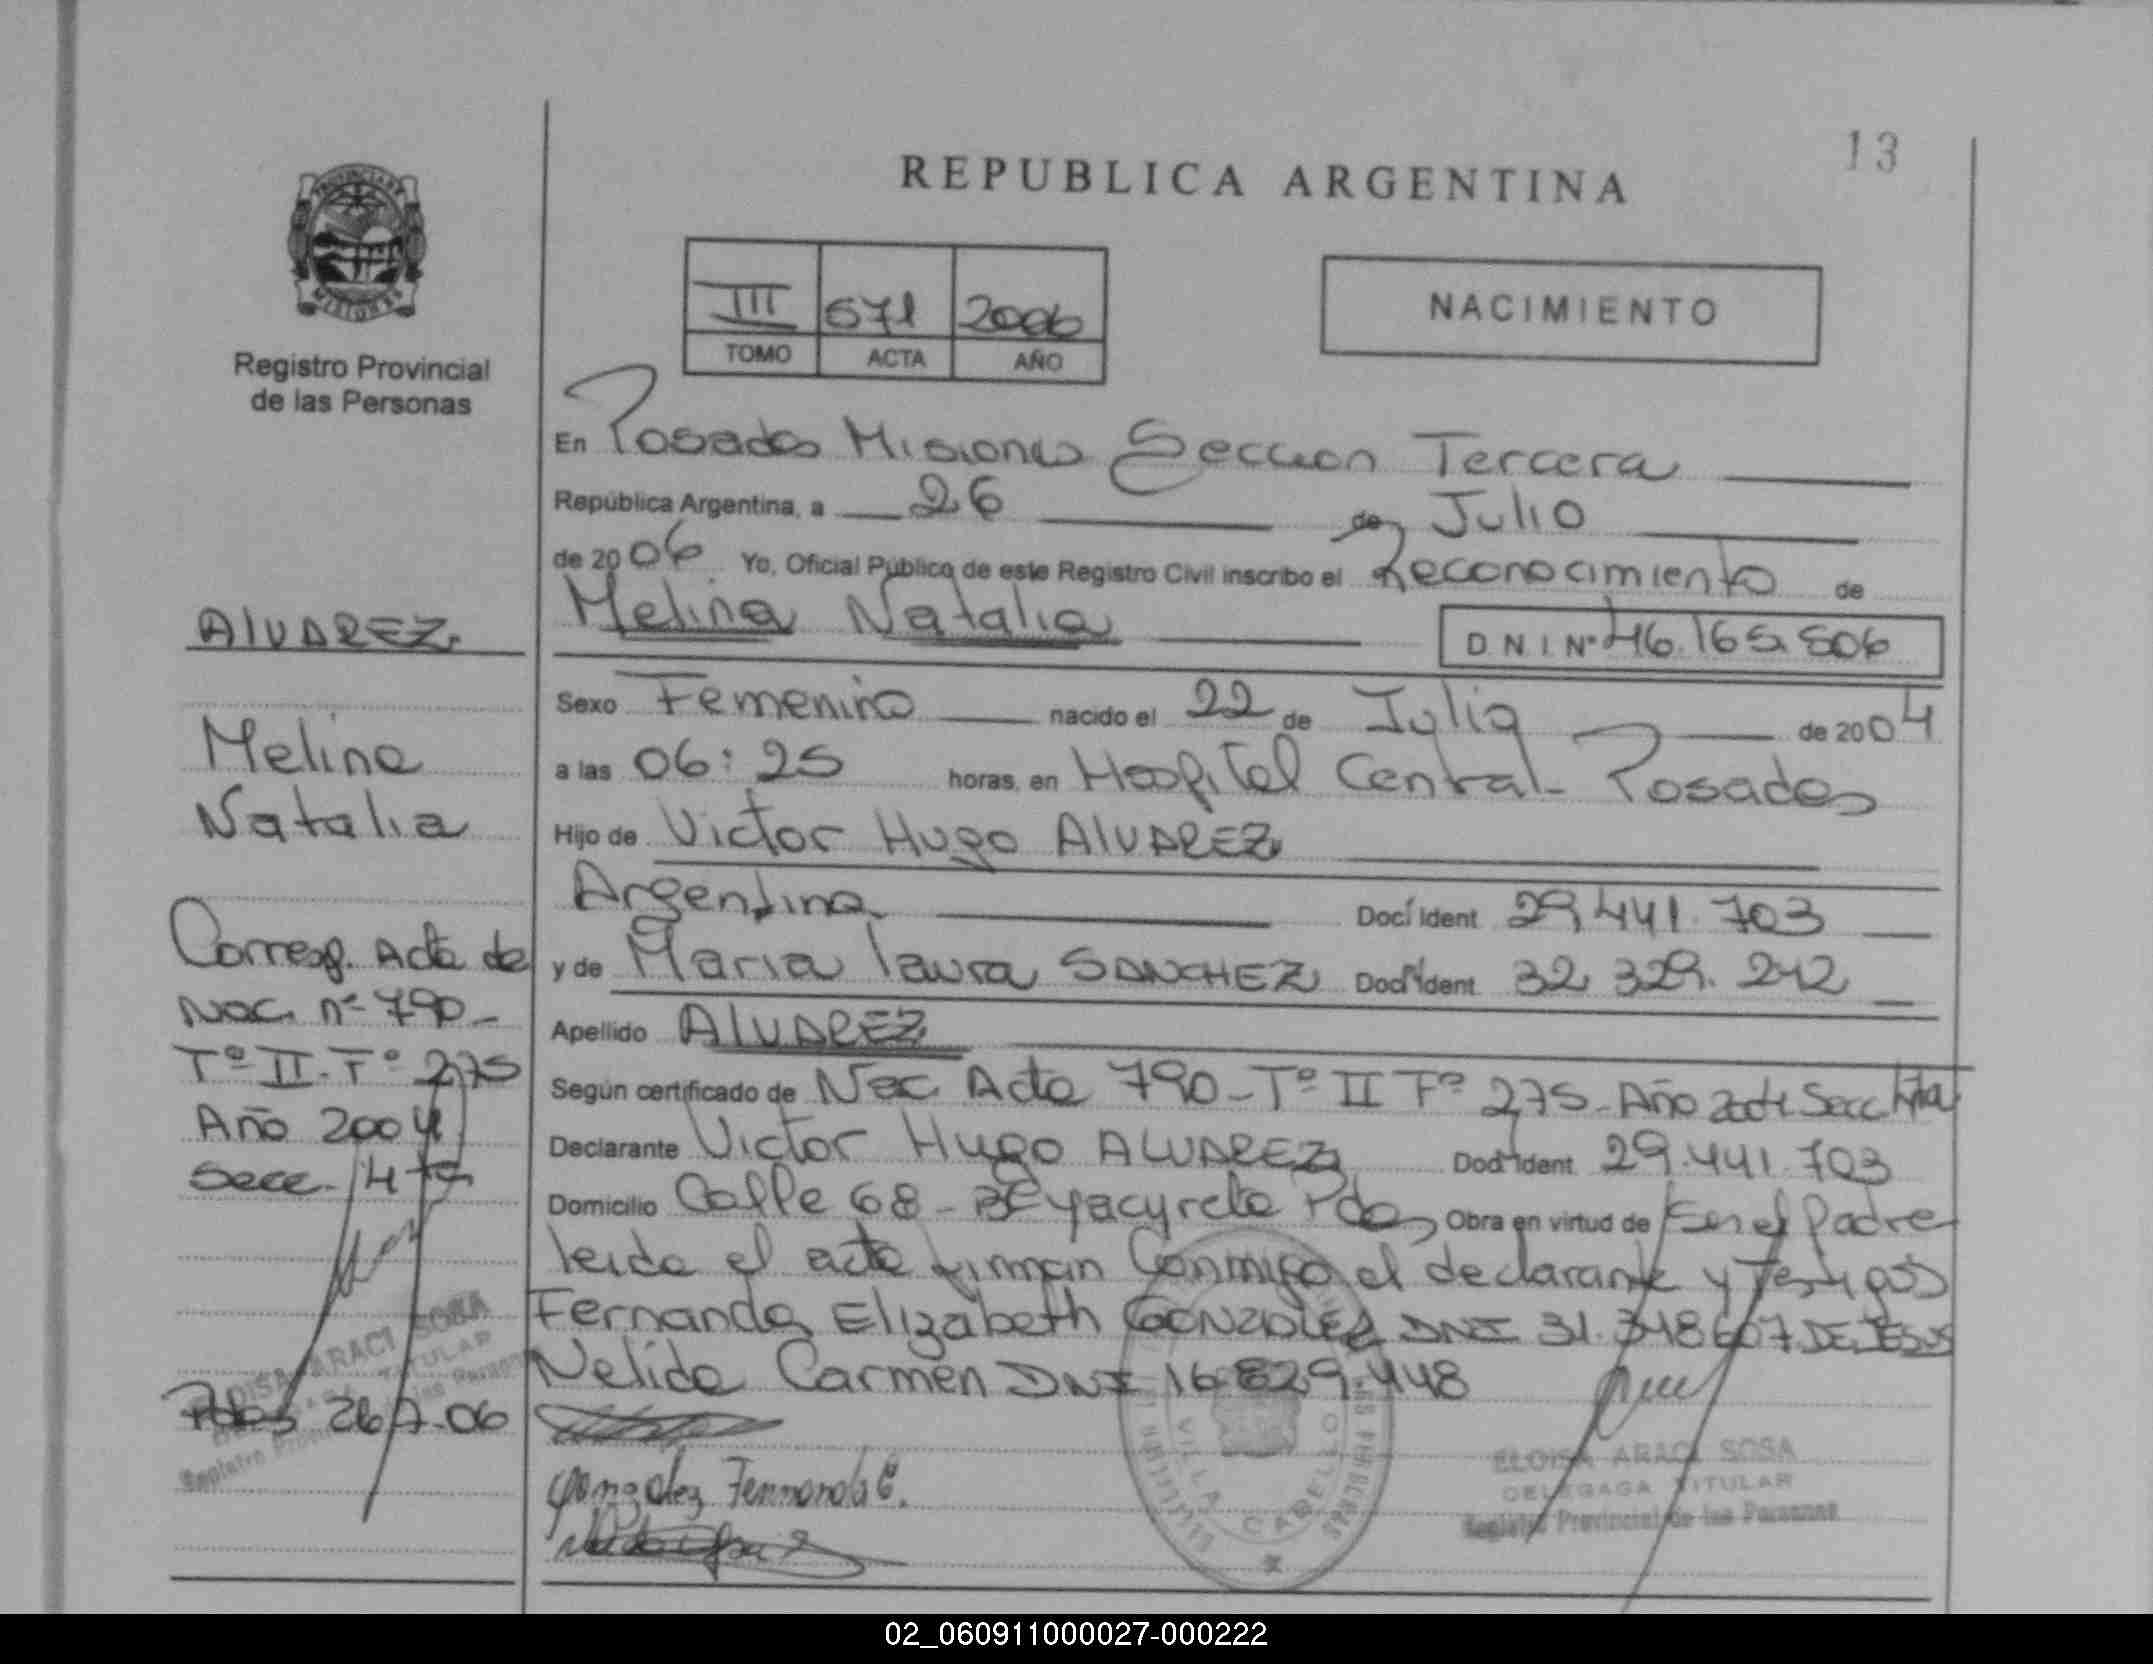 13
REPUBLICA ARGENTINA
PROVINCIA DE
MISIONES
Registro Provincial
de las Personas
III 571 2006
TOMO ACTA AÑO
NACIMIENTO
En Posadas Misiones Seccion Tercera
República Argentina, a 26 de Julio
de 2006 Yo, Oficial Público de este Registro Civil inscribo el Reconocimiento de
Melina Natalia
D N I Nº 46.165.506
Sexo Femenino nacido el 22 de Julio de 2004
a las 06:25 horas, en Hospital Central - Posadas
Hijo de Victor Hugo ALVAREZ
Argentina Doc. Ident 29.441.703
y de Maria Laura SANCHEZ Doc. Ident 32.329.242
Apellido ALVAREZ
Según certificado de Nac. Acta 790 - Tº II Fº 275 - Año 2004 Secc 4ta
Declarante Victor Hugo ALVAREZ Doc. Ident. 29.441.703
Domicilio Calle 68 - Bº Yacyreta Pdas Obra en virtud de Ser el Padre
leida el acta firman Conmigo el declarante y Testigos
Fernanda Elizabeth GONZALEZ DNI 31.348.607 DE JESUS
Nelida Carmen DNI 16.829.448
Gonzalez Fernanda E.
ALVAREZ
Melina
Natalia
Corresp. Acta de
Nac. nº 790 -
Tº II - Fº 275
Año 2004
Secc. 4ta
ELOISA ARACI SOSA
TITULAR
Registro Provincial de las Personas
Pdas 26-7-06
VILLA CABELLO
ELOISA ARACI SOSA
DELEGADA TITULAR
Registro Provincial de las Personas
02_060911000027-000222